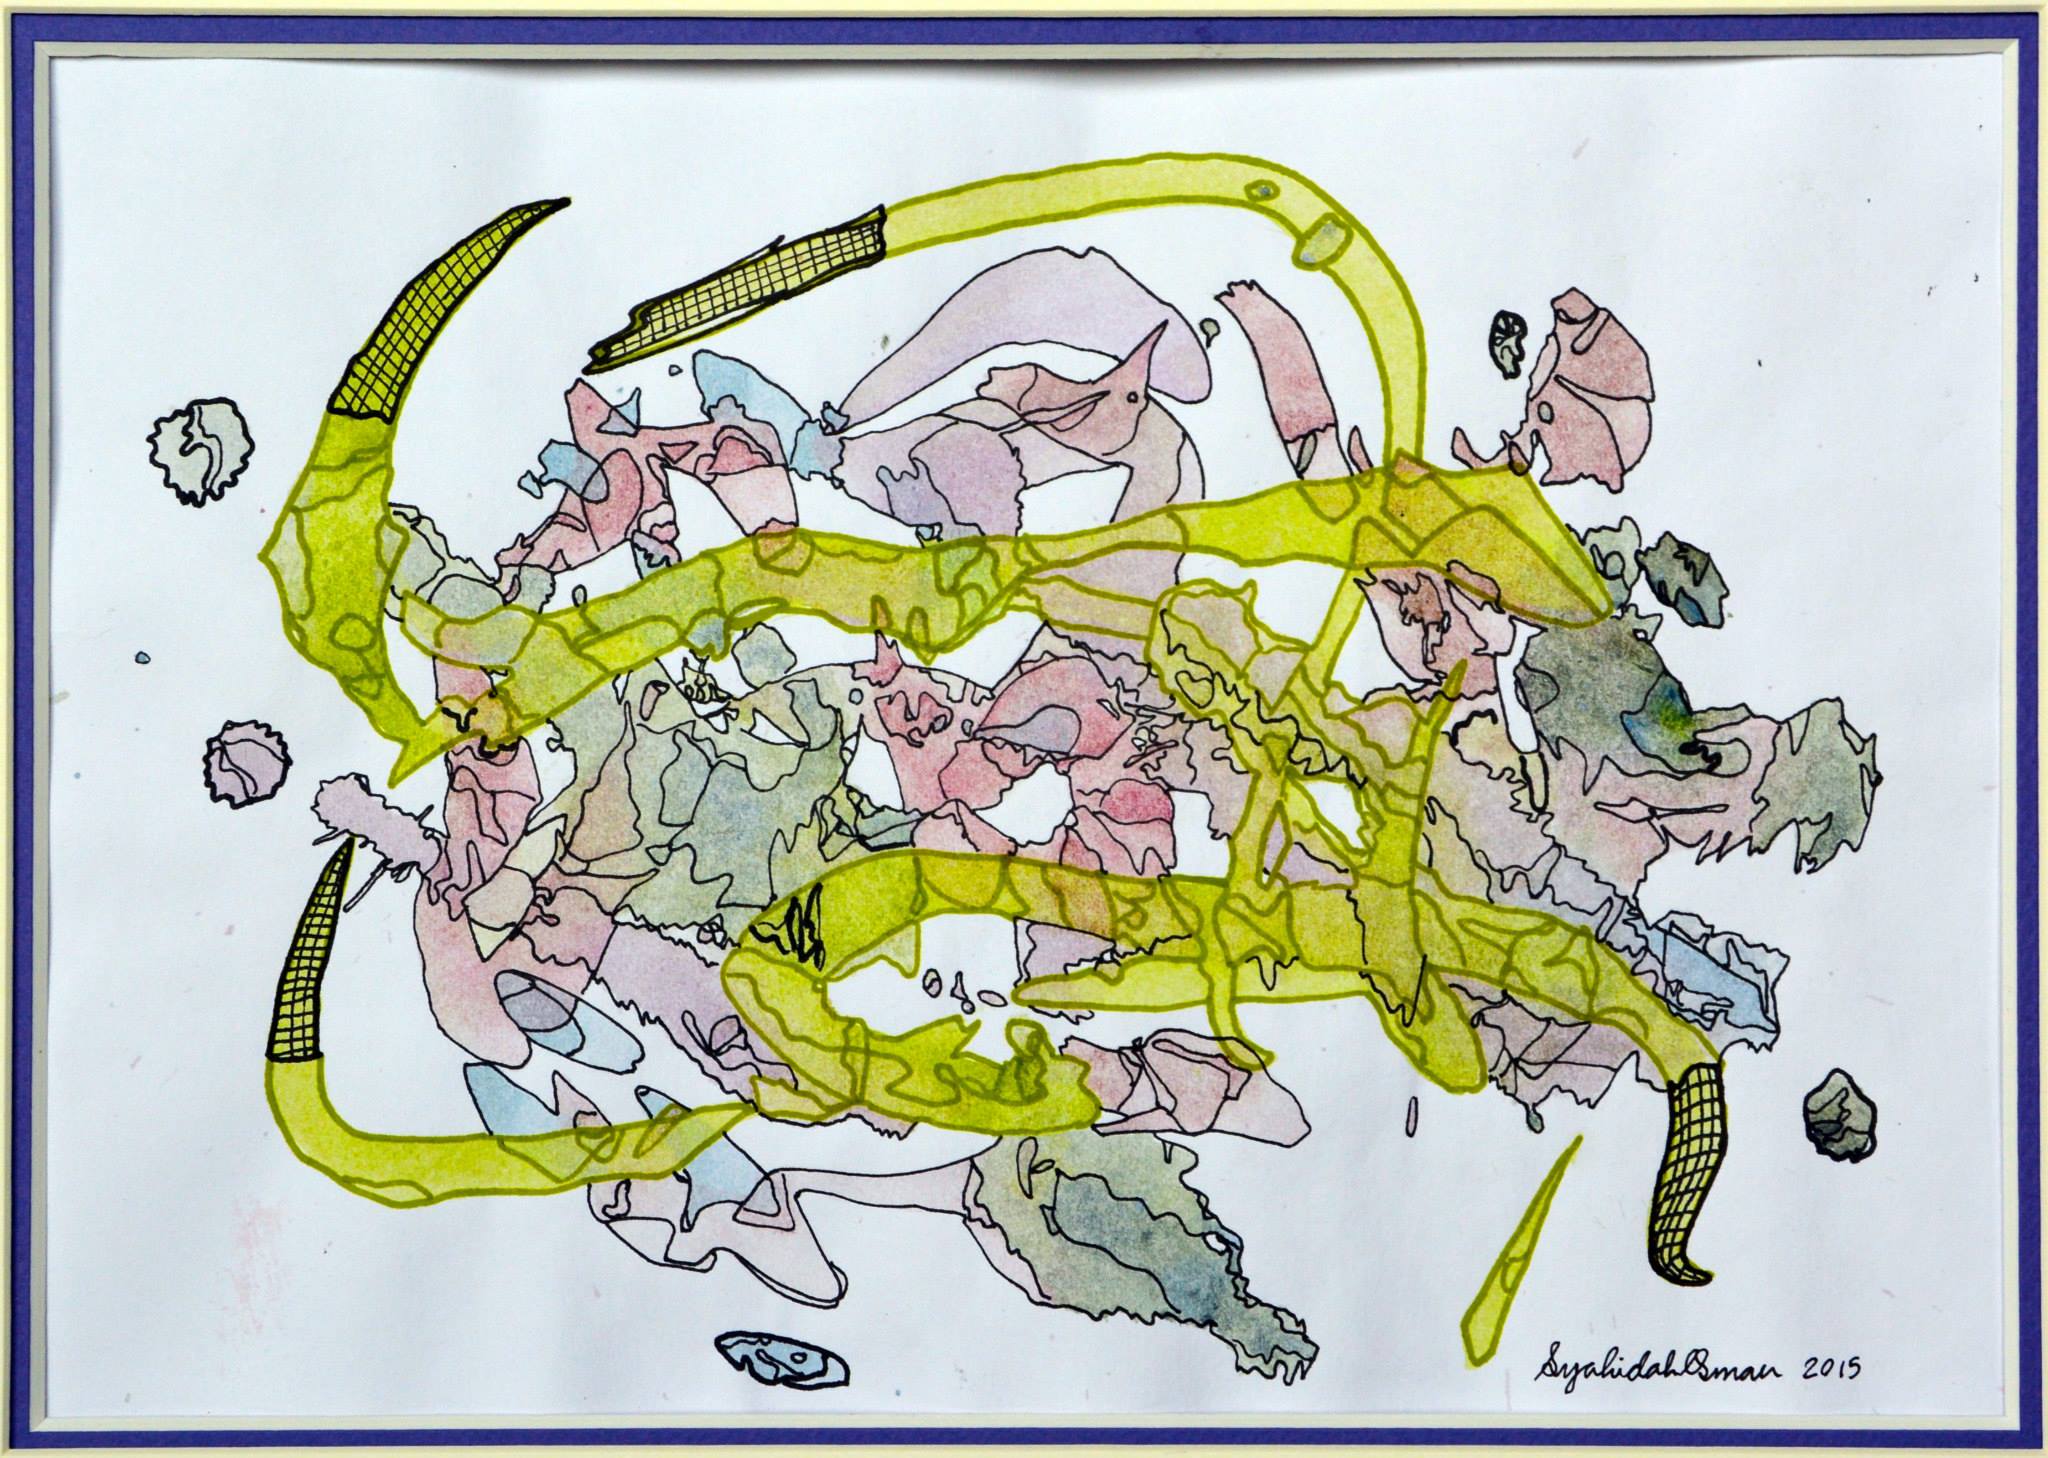 Syahidah Osman 2015